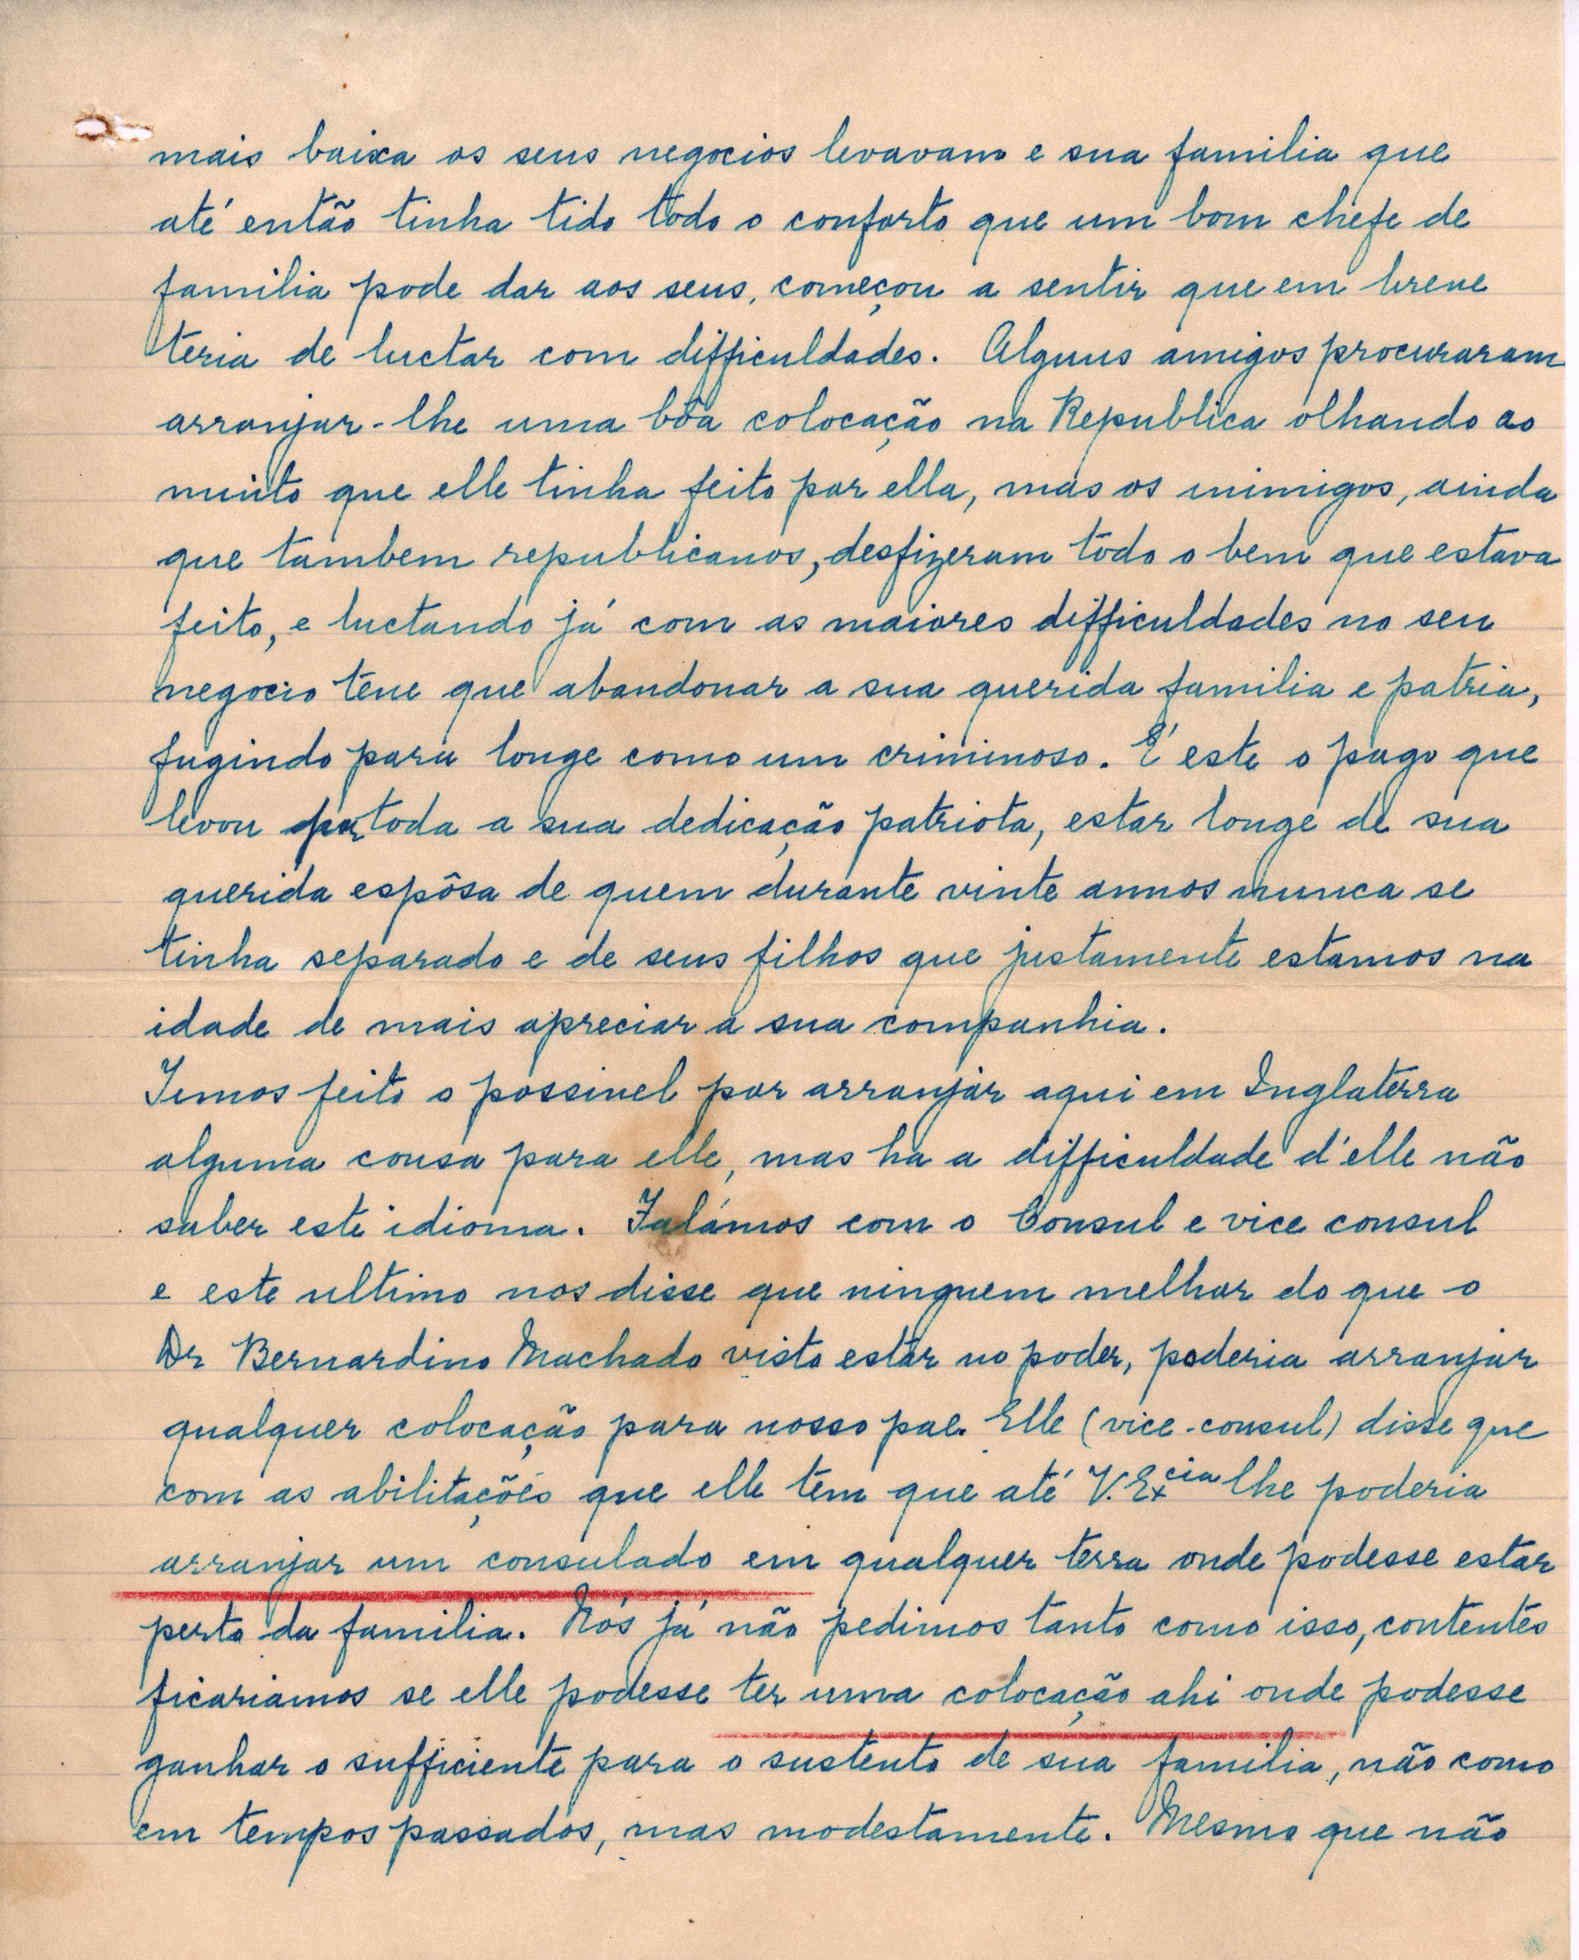 mais baixa os seus negocios levavam e sua familia que
até então tinha tido todo o conforto que um bom chefe de
familia pode dar aos seus, começou a sentir que em breve
teria de luctar com difficuldades. Alguns amigos procuraram
arranjar-lhe uma bôa colocação na Republica olhando ao
muito que elle tinha feito por ella, mas os inimigos, ainda
que tambem republicanos, desfizeram todo o bem que estava
feito, e luctando já com as maiores difficuldades no seu
negocio têve que abandonar a sua querida familia e patria,
fugindo para longe como um criminoso. É este o pago que
levou por toda a sua dedicação patriota, estar longe de sua
querida espôsa de quem durante vinte annos nunca se
tinha separado e de seus filhos que justamente estamos na
idade de mais apreciar a sua companhia.
Temos feito o possivel por arranjar aqui em Inglaterra
alguma cousa para elle, mas ha a difficuldade d'elle não
saber este idioma. Falámos com o Consul e vice consul
e este ultimo nos disse que ninguem melhor do que o
Dr Bernardino Machado visto estár no poder, poderia arranjar
qualquer colocação para nosso pae. Elle (vice-consul) disse que
com as abilitações que elle tem que até V. Excia lhe poderia
arranjar um consulado em qualquer terra onde podesse estar
perto da familia. Nós já não pedimos tanto como isso, contentes
ficariamos se elle podesse ter uma colocação ahi onde podesse
ganhar o sufficiente para o sustento de sua familia, não como
em tempos passados, mas modestamente. Mesmo que não